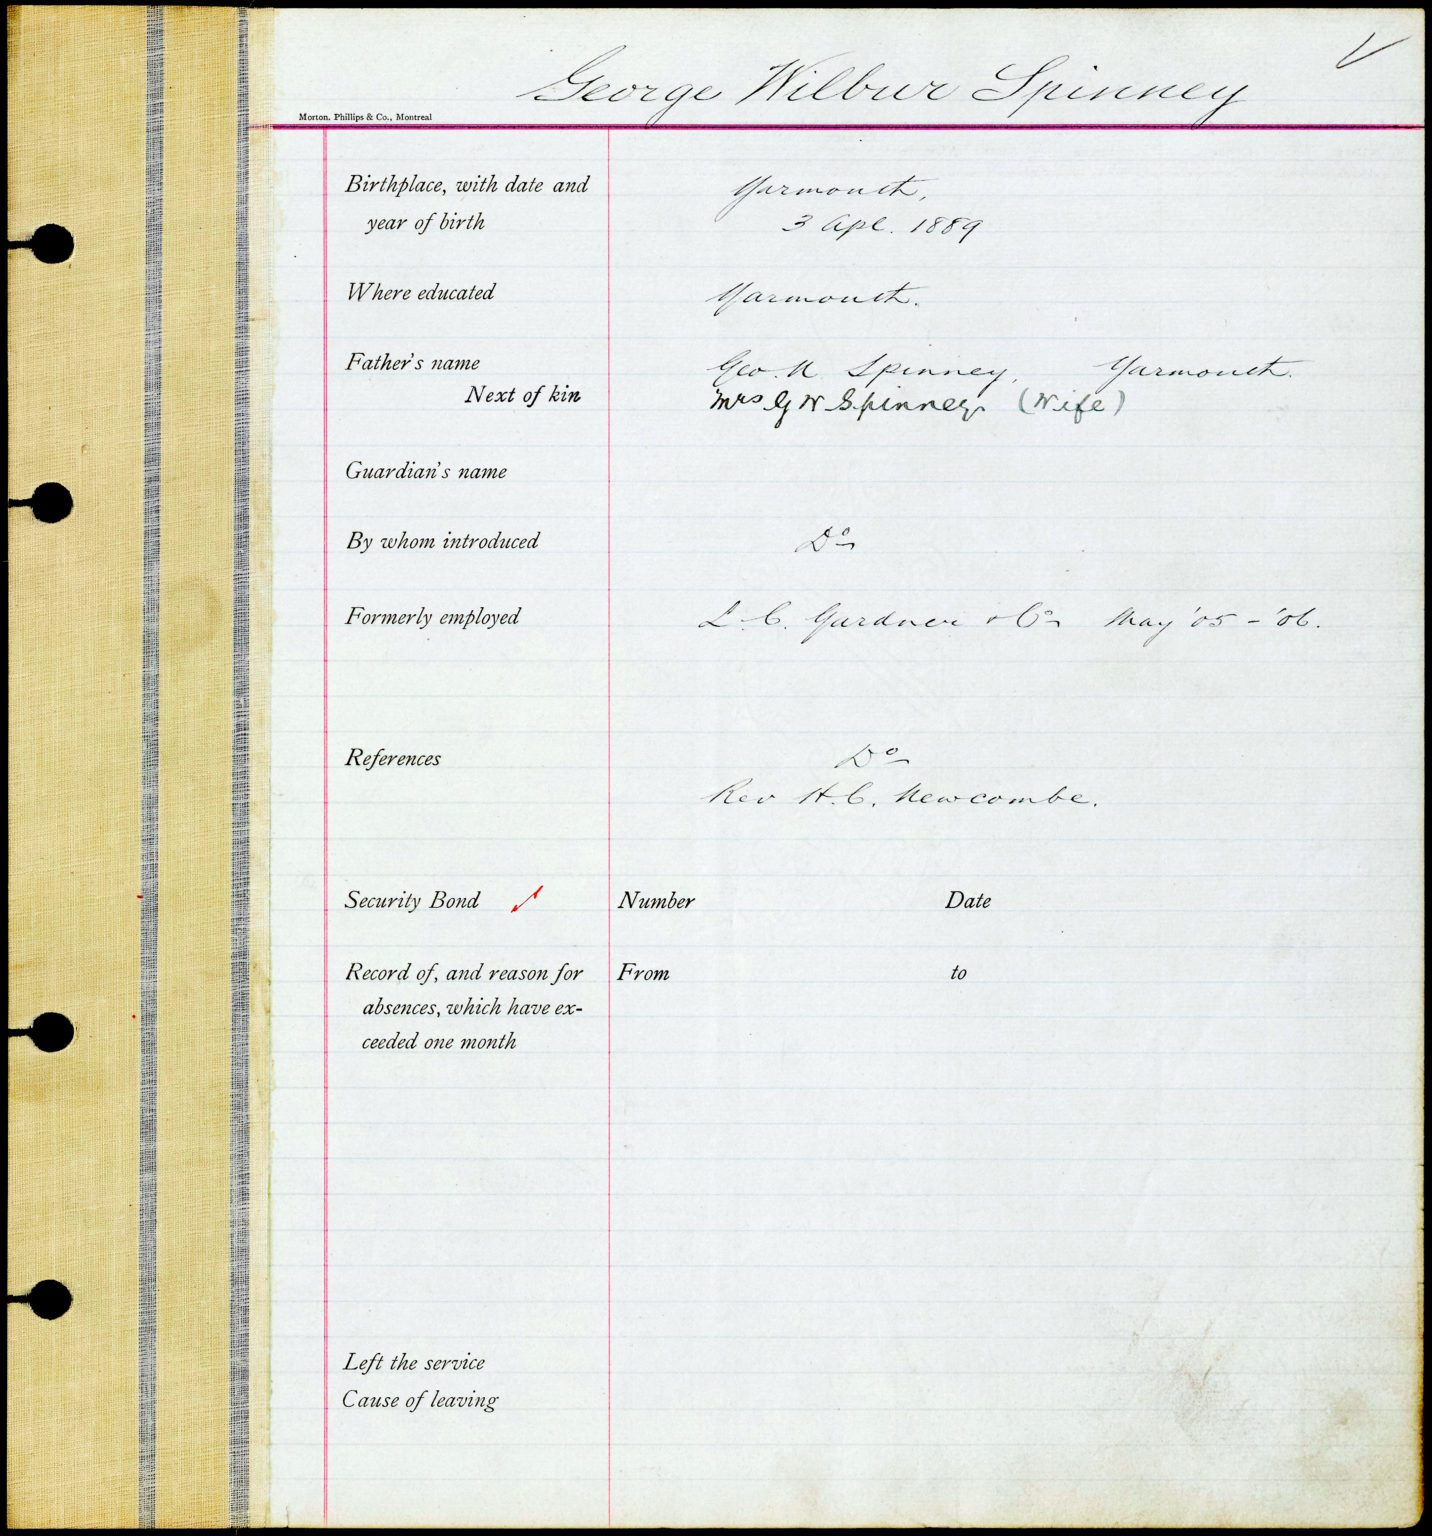 George Wilbur Spinney
Morton, Phillips & Co., Montreal
Birthplace, with date and Yarmouth,
year of birth 3 Apl. 1889
Where educated Yarmouth.
Father's name Geo. N Spinney, Yarmouth.
Next of kin Mrs G W Spinney (Wife)
Guardian's name
By whom introduced Do
Formerly employed L. C. Gardner & Co May '05 - '06.
References Do
Rev H. C. Newcombe.
Security Bond Number Date
Record of, and reason for From to
absences, which have ex-
ceeded one month
Left the service
Cause of leaving